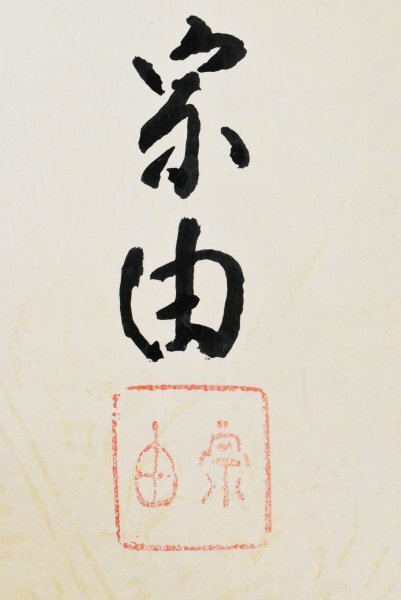 宗
由
宗由